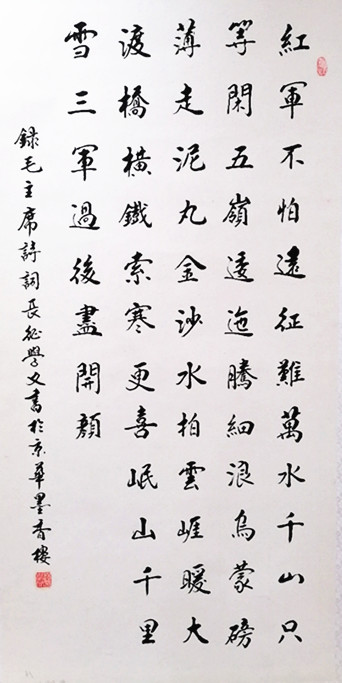 紅軍不怕遠征難萬水千山只
等閑五嶺逶迤騰細浪烏蒙磅
薄走泥丸金沙水拍雲崖暖大
渡橋橫鐵索寒更喜岷山千里
雪三軍過後盡開顏
録毛主席詩詞長征學文書於京華墨香樓